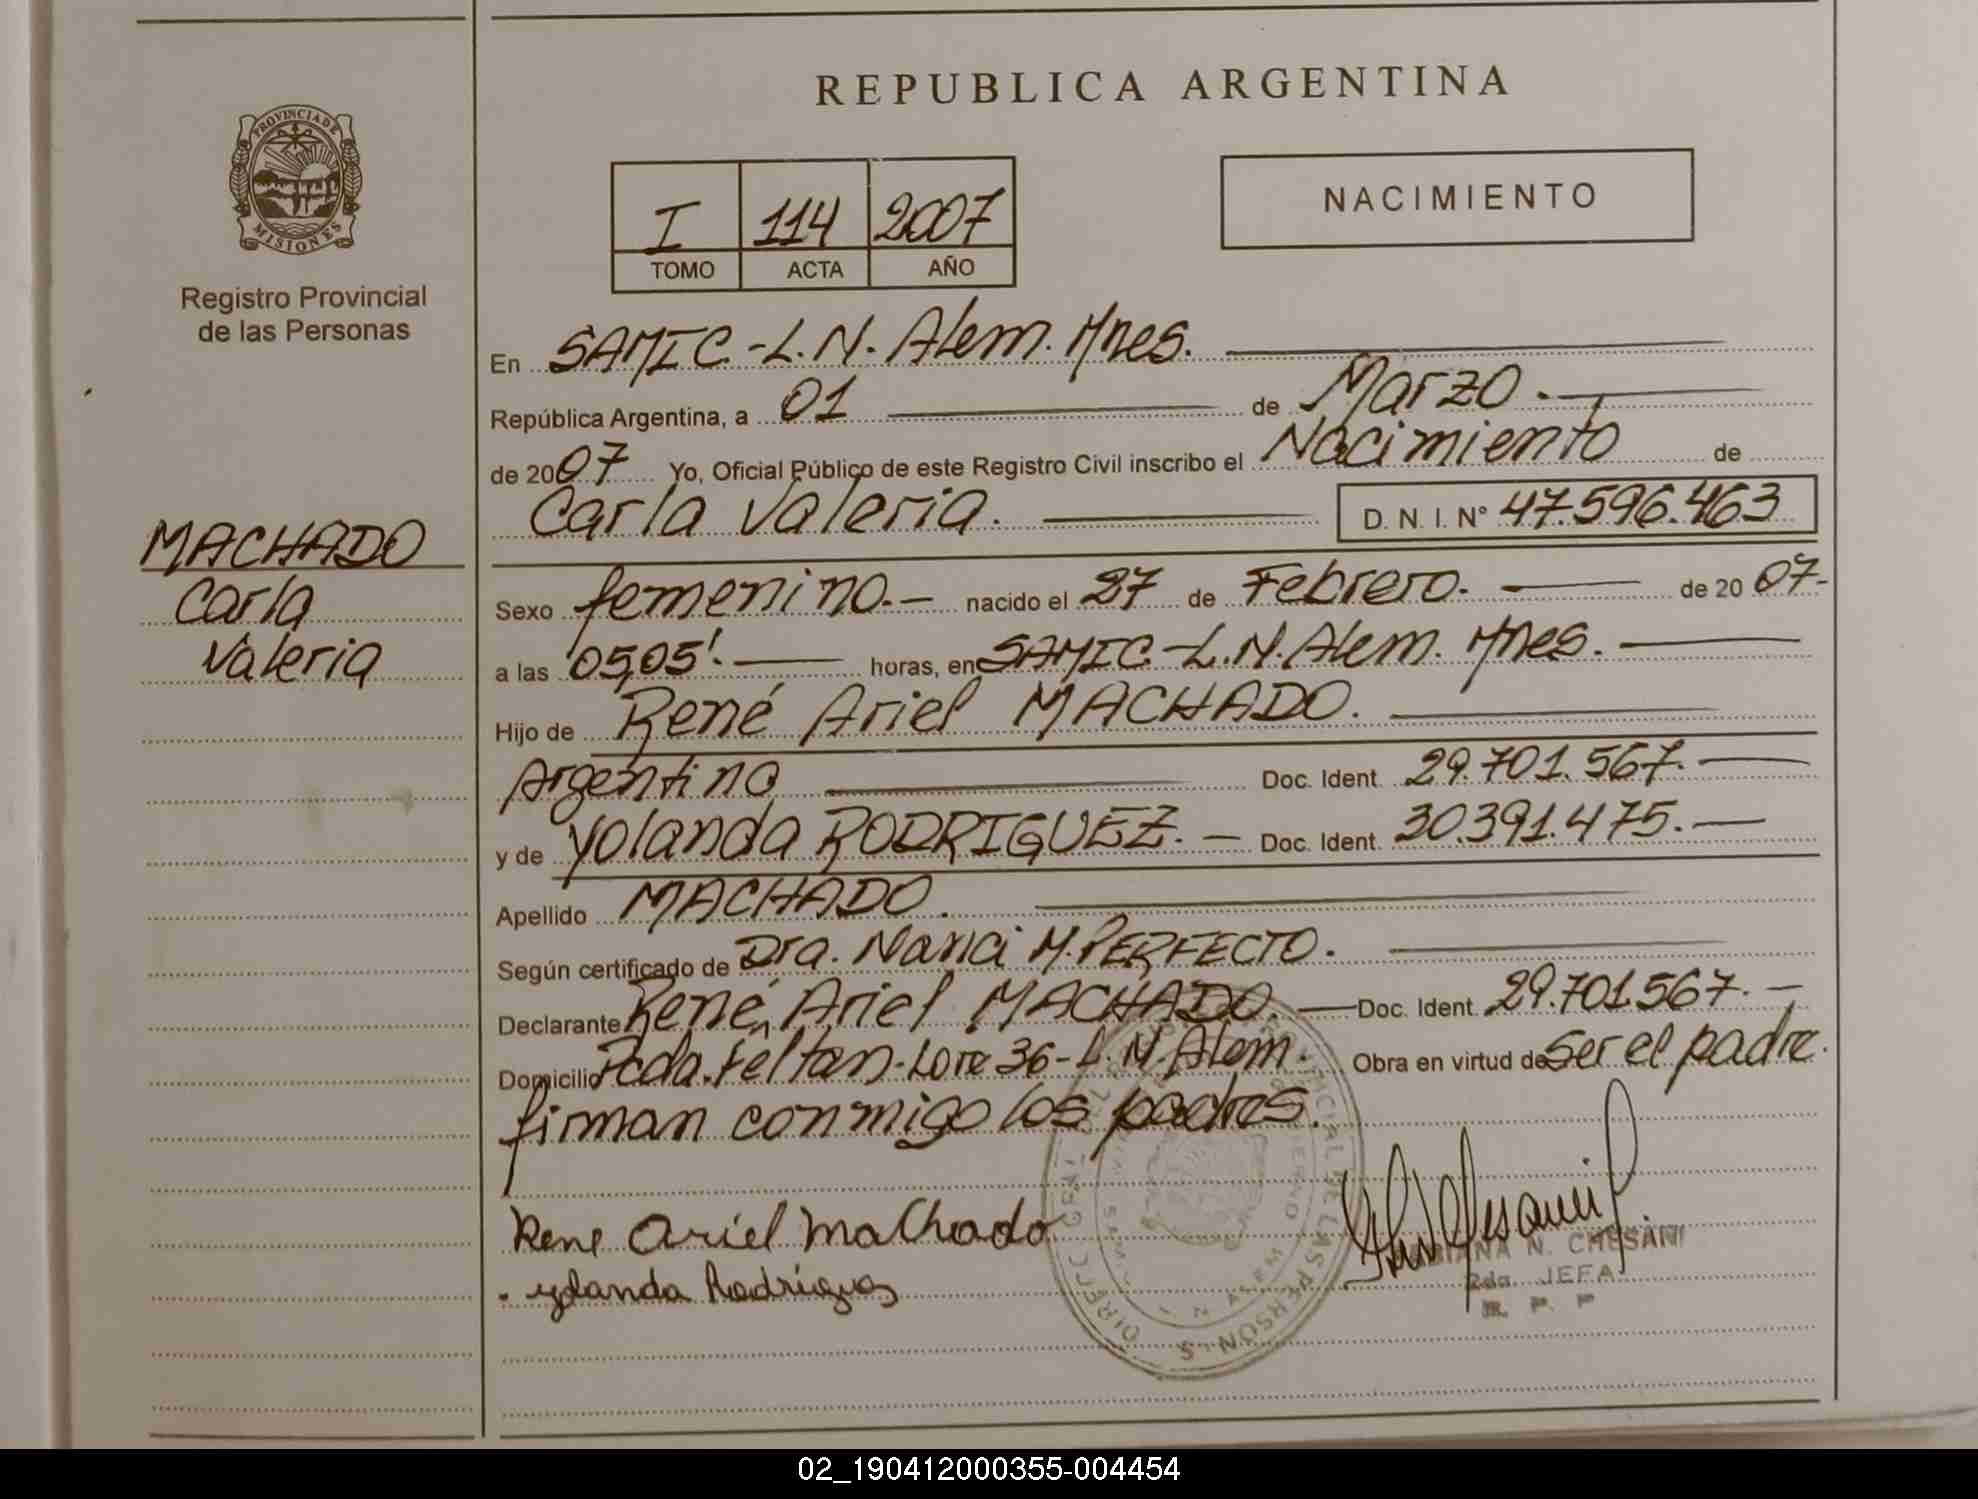 REPUBLICA ARGENTINA
PROVINCIA DE
MISIONES
Registro Provincial
de las Personas
I 114 2007
TOMO ACTA AÑO
NACIMIENTO
En SAMIC.-L.N. Alem. Mnes.
República Argentina, a 01 de Marzo.
de 2007 Yo, Oficial Público de este Registro Civil inscribo el Nacimiento de
Carla Valeria. D. N. I. N° 47.596.463
MACHADO
Carla
Valeria
Sexo femenino.- nacido el 27 de Febrero. de 20 07-
a las 05,05'. horas, en SAMIC.-L.N. Alem. Mnes.
Hijo de René Ariel MACHADO.
Argentino Doc. Ident. 29.701.567.
y de Yolanda RODRIGUEZ. Doc. Ident. 30.391.475.
Apellido MACHADO.
Según certificado de Dra. Nanci M. PERFECTO.
Declarante René Ariel MACHADO. Doc. Ident. 29.701.567.-
Domicilio Pcda. Feltan-Lote 36-L.N. Alem. Obra en virtud de Ser el padre.
firman conmigo los padres.
Rene Ariel Machado
yolanda Rodriguez
N. CHESANI
2da. JEFA
R. P. P
02_190412000355-004454